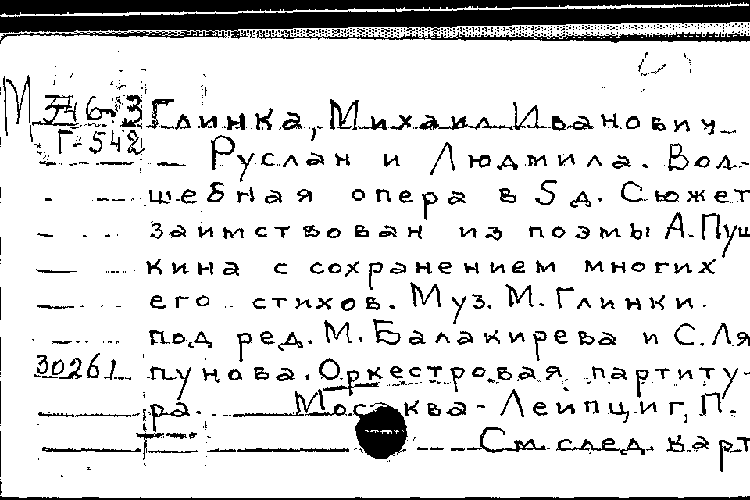 М 346-3 Глинка, Михаил Иванович
Г-542 Руслан и Людмила. Вол-
шебная опера в 5 д. Сюжет
заимствован из поэмы А. Пуш
кина с сохранением многих
его стихов. Муз. М. Глинки.
под ред. М. Балакирева и С. Ля
30261 пунова. Оркестровая партиту-
ра. Москва- Лейпциг, П.
См. след. карт